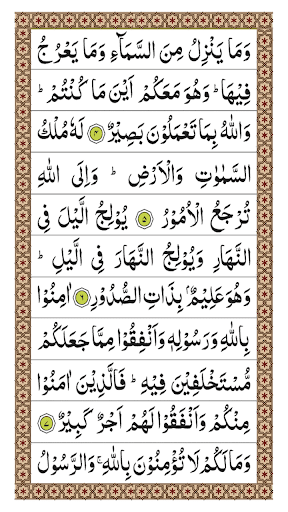 وَمَا يَنۡزِلُ مِنَ السَّمَآءِ وَمَا يَعۡرُجُ
فِيۡهَا‌ؕ وَهُوَ مَعَكُمۡ اَيۡنَ مَا كُنۡتُمۡ‌ؕ
وَاللّٰهُ بِمَا تَعۡمَلُوۡنَ بَصِيۡرٌ ۴ لَهٗ مُلۡكُ
السَّمٰوٰتِ وَالۡاَرۡضِ‌ؕ وَاِلَى اللّٰهِ
تُرۡجَعُ الۡاُمُوۡرُ ۵ يُوۡلِجُ الَّيۡلَ فِى
النَّهَارِ وَيُوۡلِجُ النَّهَارَ فِى الَّيۡلِ‌ؕ
وَهُوَ عَلِيۡمٌۢ بِذَاتِ الصُّدُوۡرِ ۶ اٰمِنُوۡا
بِاللّٰهِ وَرَسُوۡلِهٖ وَاَنۡفِقُوۡا مِمَّا جَعَلَكُمۡ
مُّسۡتَخۡلَفِيۡنَ فِيۡهِ‌ؕ فَالَّذِيۡنَ اٰمَنُوۡا
مِنۡكُمۡ وَاَنۡفَقُوۡا لَهُمۡ اَجۡرٌ كَبِيۡرٌ ۷
وَمَا لَكُمۡ لَا تُؤۡمِنُوۡنَ بِاللّٰهِ‌ۚ وَالرَّسُوۡلُ